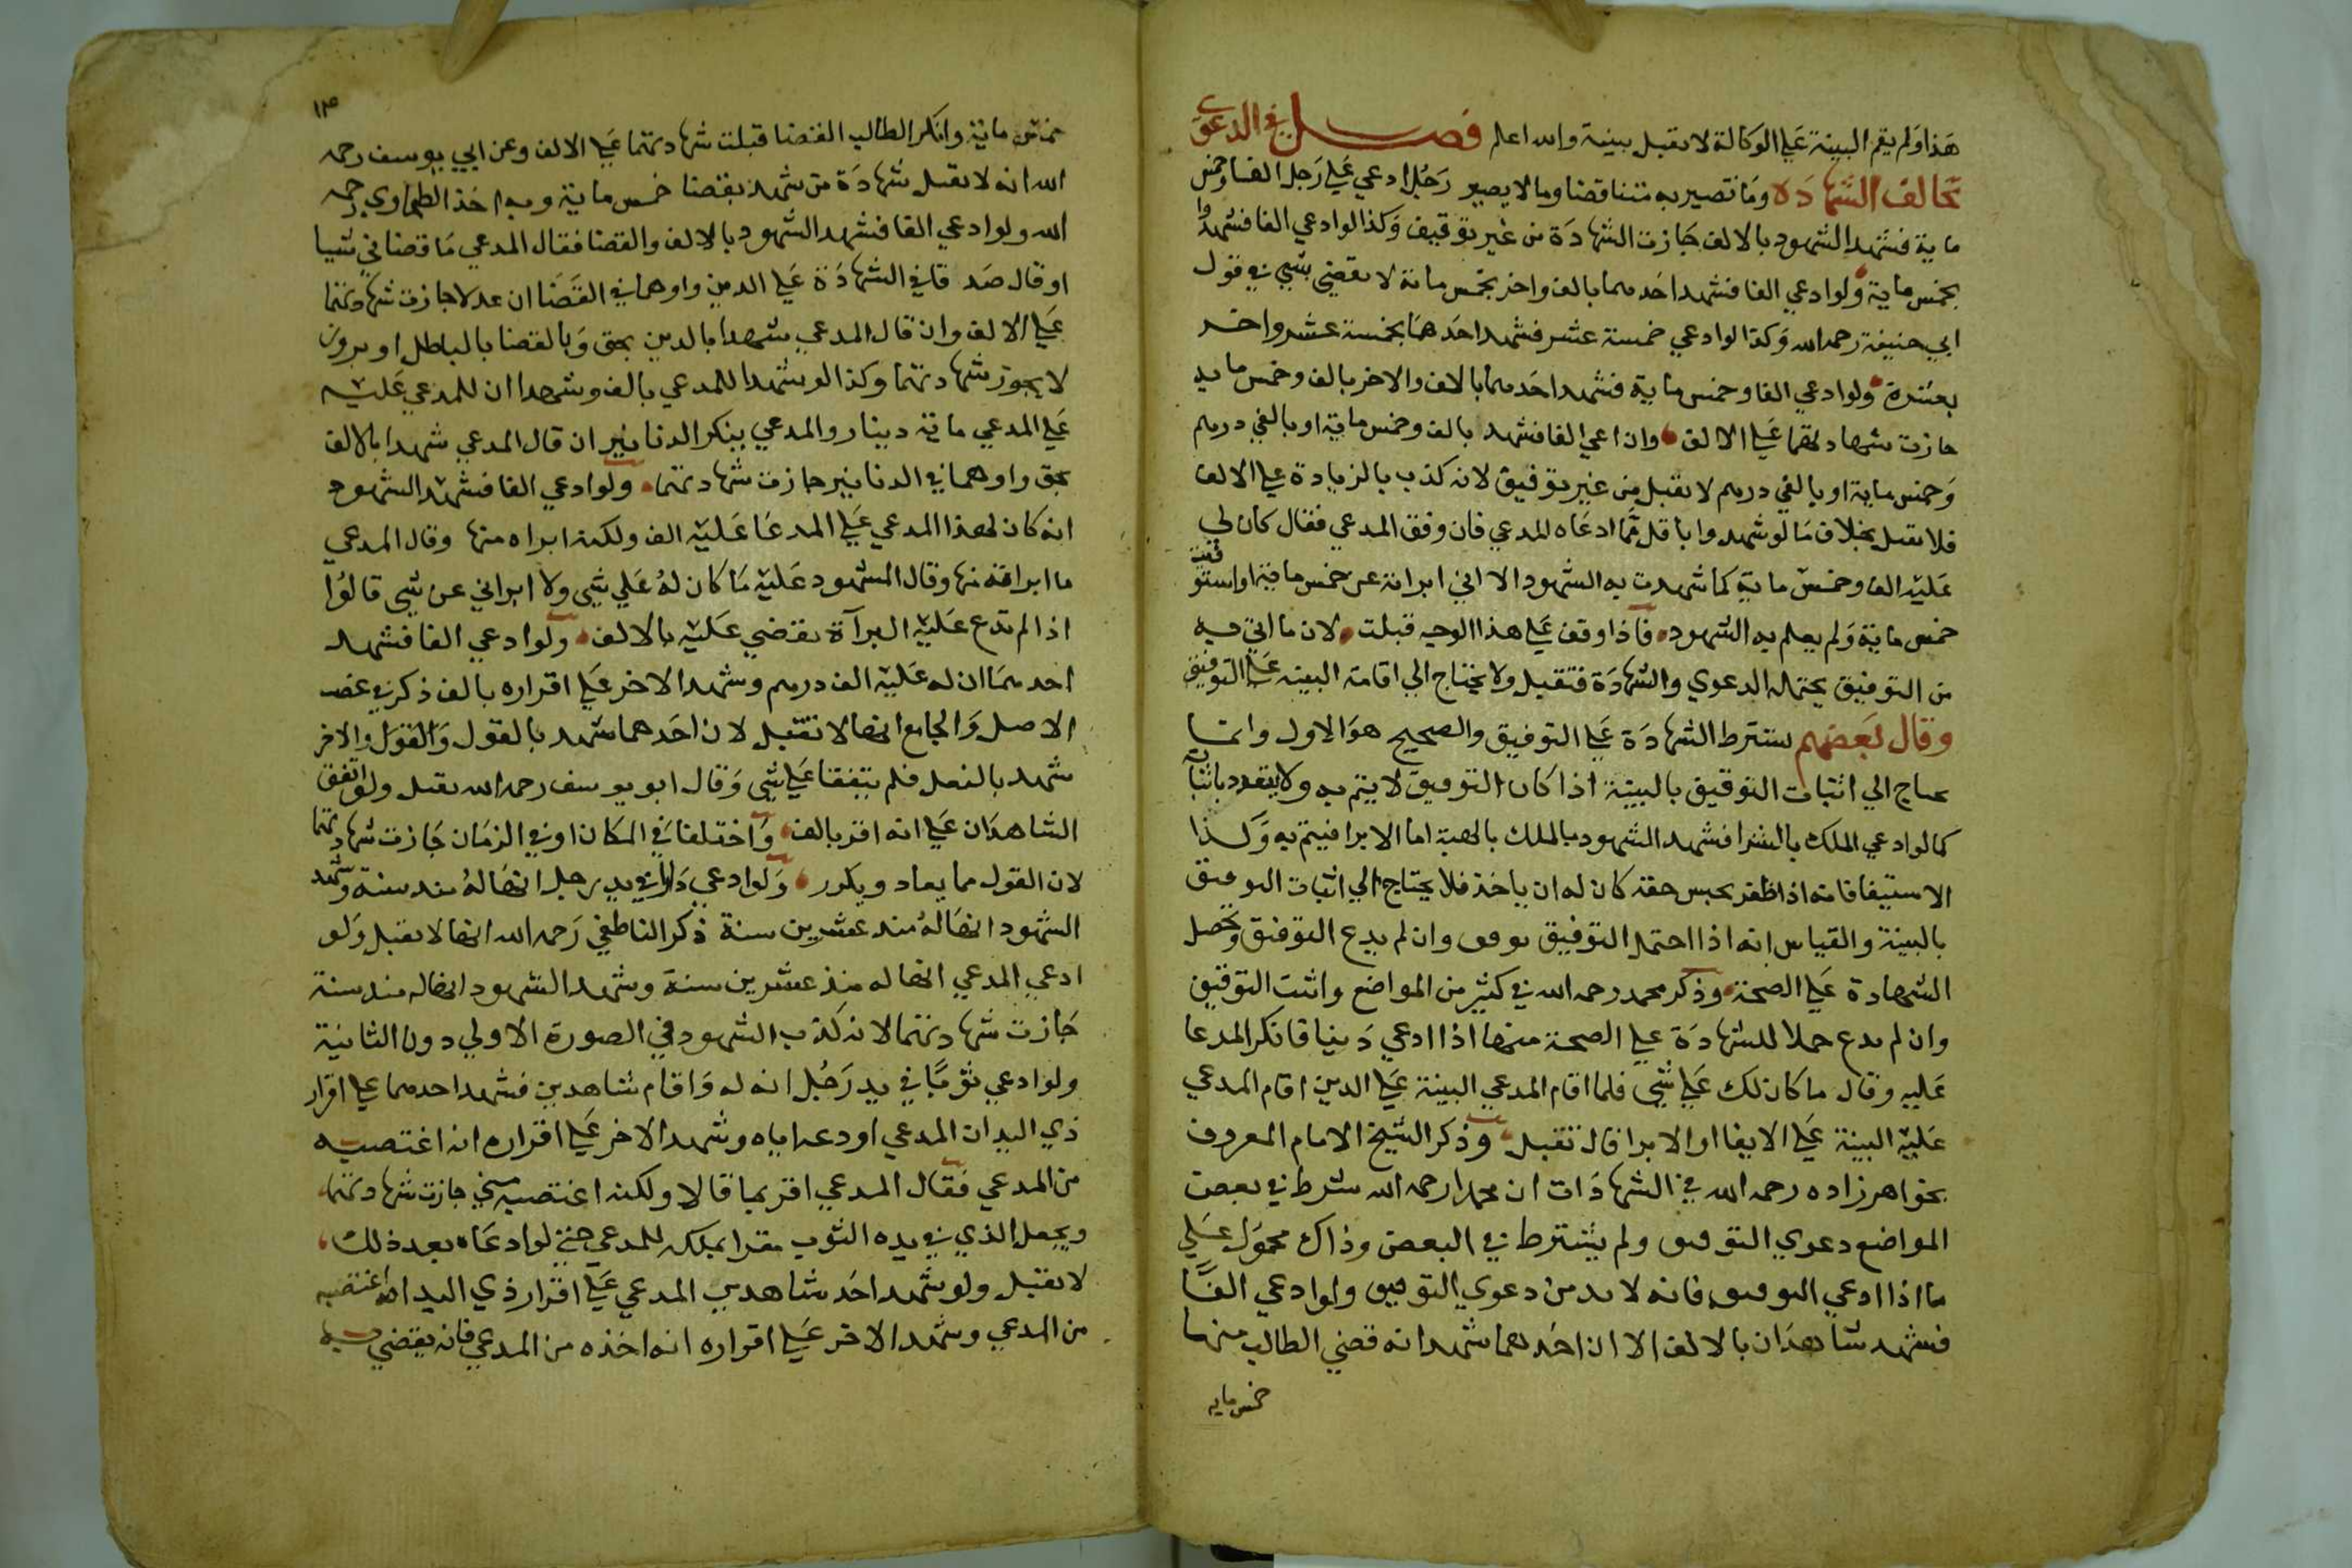 هذا ولم يقم البينة علي الوكالة لا يقبل بينة والله اعلم فصل في الدعوي
تخالف الشهادة وما تصير به متناقضا وما لا يصير رجل ادعي علي رجل الفا وخمس
ماية فشهد الشهود بالالف جازت الشهادة من غير توقيف وكذا لو ادعي الفا فشهدوا
بخمس ماية ولو ادعي الفا فشهد احدهما بالف واخر بخمس ماية لا يقضي بشي في قول
ابي حنيفة رحمه الله وكذا لو ادعي خمسة عشر فشهد احدهما بخمسة عشر واخر
بعشرة ولو ادعي الفا وخمس ماية فشهد احدهما بالالف والاخر بالف وخمس مايه
جازت شهادتهما علي الالف وان ادعي الفا فشهد بالف وخمس ماية او بالفي درهم
وخمس ماية او بالفي درهم لا يقبل من غير توفيق لانه كذب بالزيادة علي الالف
فلا يقبل بخلاف ما لو شهدوا باقل مما ادعاه المدعي فان وفق المدعي فقال كان لي
عليه الف وخمس ماية كما شهدت به الشهود الا اني ابراته عن خمس ماية او استوفيت
خمس ماية ولم يعلم به الشهود فاذا وفق علي هذا الوجه قبلت لان ما اتي به
من التوفيق يحتمله الدعوي والشهادة فتقبل ولا يحتاج الي اقامة البينه علي التوفيق
وقال بعضهم يشترط الشهادة علي التوفيق والصحيح هو الاول وانما
يحتاج الي اثبات التوفيق بالبينة اذا كان التوفيق لا يتم به ولا ينفرد باثباته
كما لو ادعي الملك بالشرا فشهد الشهود بالملك بالهبة اما الابرا فيتم به وكذا
الاستيفا فانه اذا ظفر بجنس حقه كان له ان ياخذ فلا يحتاج الي اثبات التوفيق
بالبينة والقياس انه اذا احتمل التوفيق يوفق وان لم يدع التوفيق وتحمل
الشهادة علي الصحة وذكر محمد رحمه الله في كثير من المواضع واثبت التوفيق
وان لم يدع حملا للشهادة علي الصحة منها اذا ادعي دينا فانكر المدعا
عليه وقال ما كان لك علي شي فلما اقام المدعي البينة علي الدين اقام المدعي
عليه البينة علي الايفا او الابرا قال تقبل وذكر الشيخ الامام المعروف
بخواهرزاده رحمه الله في الشهادات ان محمدا رحمه الله شرط في بعض
المواضع دعوي التوفيق ولم يشترط في البعض وذاك محمول علي
ما اذا ادعي التوفيق فانه لا بد من دعوي التوفيق ولو ادعي الفا
فشهد شاهدان بالالف الا ان احدهما شهد انه قضي الطالب منها
خمس مايه
١٣
خمس ماية وانكر الطالب القضا قبلت شهادتهما علي الالف وعن ابي يوسف رحمه
الله انه لا يقبل شهادة من شهد بقضا خمس ماية وبه اخذ الطحاوي رحمه
الله ولو ادعي الفا فشهد الشهود بالالف والقضا فقال المدعي ما قضاني شيا
او قال صدقا في الشهادة علي الدين واوهما في القضا ان عدلا جازت شهادتهما
علي الالف وان قال المدعي شهدا بالدين بحق وبالقضا بالباطل او بزور
لا يجوز شهادتهما وكذا لو شهدا للمدعي بالف وشهدا ان للمدعي عليه
علي المدعي ماية دينار والمدعي ينكر الدنانير ان قال المدعي شهدا بالالف
بحق واوهما في الدنانير جازت شهادتهما ولو ادعي الفا فشهد الشهود
انه كان لهذا المدعي علي المدعا عليه الف ولكنه ابراه منها وقال المدعي
ما ابراته منها وقال المشهود عليه ما كان له علي شي ولا ابراني عن شي قالوا
اذا لم تدع عليه البرآة يقضي عليه بالالف ولو ادعي الفا فشهد
احدهما ان له عليه الف درهم وشهد الاخر علي اقراره بالف ذكر في غصب
الاصل والجامع انها لا تقبل لان احدهما شهد بالقول والقول والاخر
شهد بالفعل فلم يتفقا علي شي وقال ابو يوسف رحمه الله يقبل ولو اتفق
الشاهدان علي انه اقر بالف واختلفا في المكان او في الزمان جازت شهادتهما
لان القول مما يعاد ويكرر ولو ادعي دارا في يد رجل انها له منذ سنة وشهد
الشهود انها له منذ عشرين سنة ذكر الناطفي رحمه الله انها لا يقبل ولو
ادعي المدعي انها له منذ عشرين سنة وشهد الشهود انها له منذ سنة
جازت شهادتهما لانه كذب الشهود في الصورة الاولي دون الثانية
ولو ادعي ثوبا في يد رجل انه له واقام شاهدين فشهد احدهما علي اقرار
ذي اليد ان المدعي اودعه اياه وشهد الاخر علي اقراره انه اغتصبه
من المدعي فقال المدعي اقر بما قالا ولكنه اغتصبه مني جازت شهادتهما
ويجعل الذي في يده الثوب مقرا بملكه للمدعي حتي لو ادعاه بعد ذلك
لا يقبل ولو شهد احد شاهدين المدعي علي اقرار ذي اليد انه اغتصبه
من المدعي وشهد الاخر علي اقراره انه اخذه من المدعي فانه يقضي به